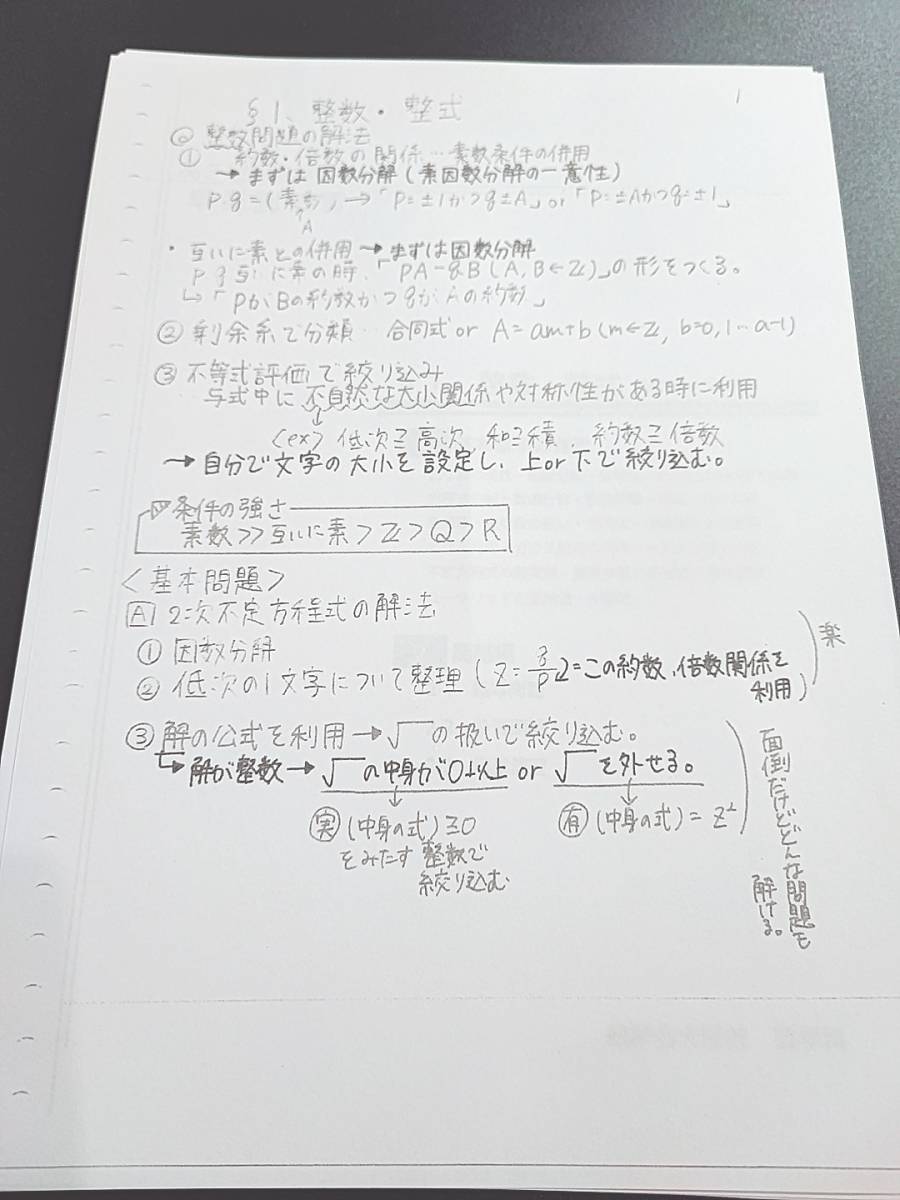 1
§1、整数・整式
◎ 整数問題の解法
① 約数・倍数の関係…素数条件の併用
→まずは因数分解(素因数分解の一意性)
p・q=(素数)→「P=±1かつq=±A」or「P=±Aかつq=±1」
A
・互いに素との併用→まずは因数分解
p q 互いに素の時、「pA=qB(A,B∈Z)」の形をつくる。
↳「pがBの約数かつqがAの約数」
② 剰余系で分類…合同式 or A=am+b(m∈Z, b=0,1…a-1)
③ 不等式評価で絞り込み
与式中に不自然な大小関係や対称性がある時に利用
<ex> 低次≧高次、和≧積、約数≧倍数
→自分で文字の大小を設定し、上or下で絞り込む。
条件の強さ
素数>>互いに素>Z>Q>R
<基本問題>
A 2次不定方程式の解法
① 因数分解
② 低次の1文字について整理(Z=q/p Z=この約数、倍数関係を
利用)
楽
③ 解の公式を利用→√ の扱いで絞り込む。
↳解が整数→√ の中身が0以上 or √ を外せる。
実 (中身の式)≧0
をみたす整数で
絞り込む
有 (中身の式)=Z²
面倒だけどどんな問題も
解ける。